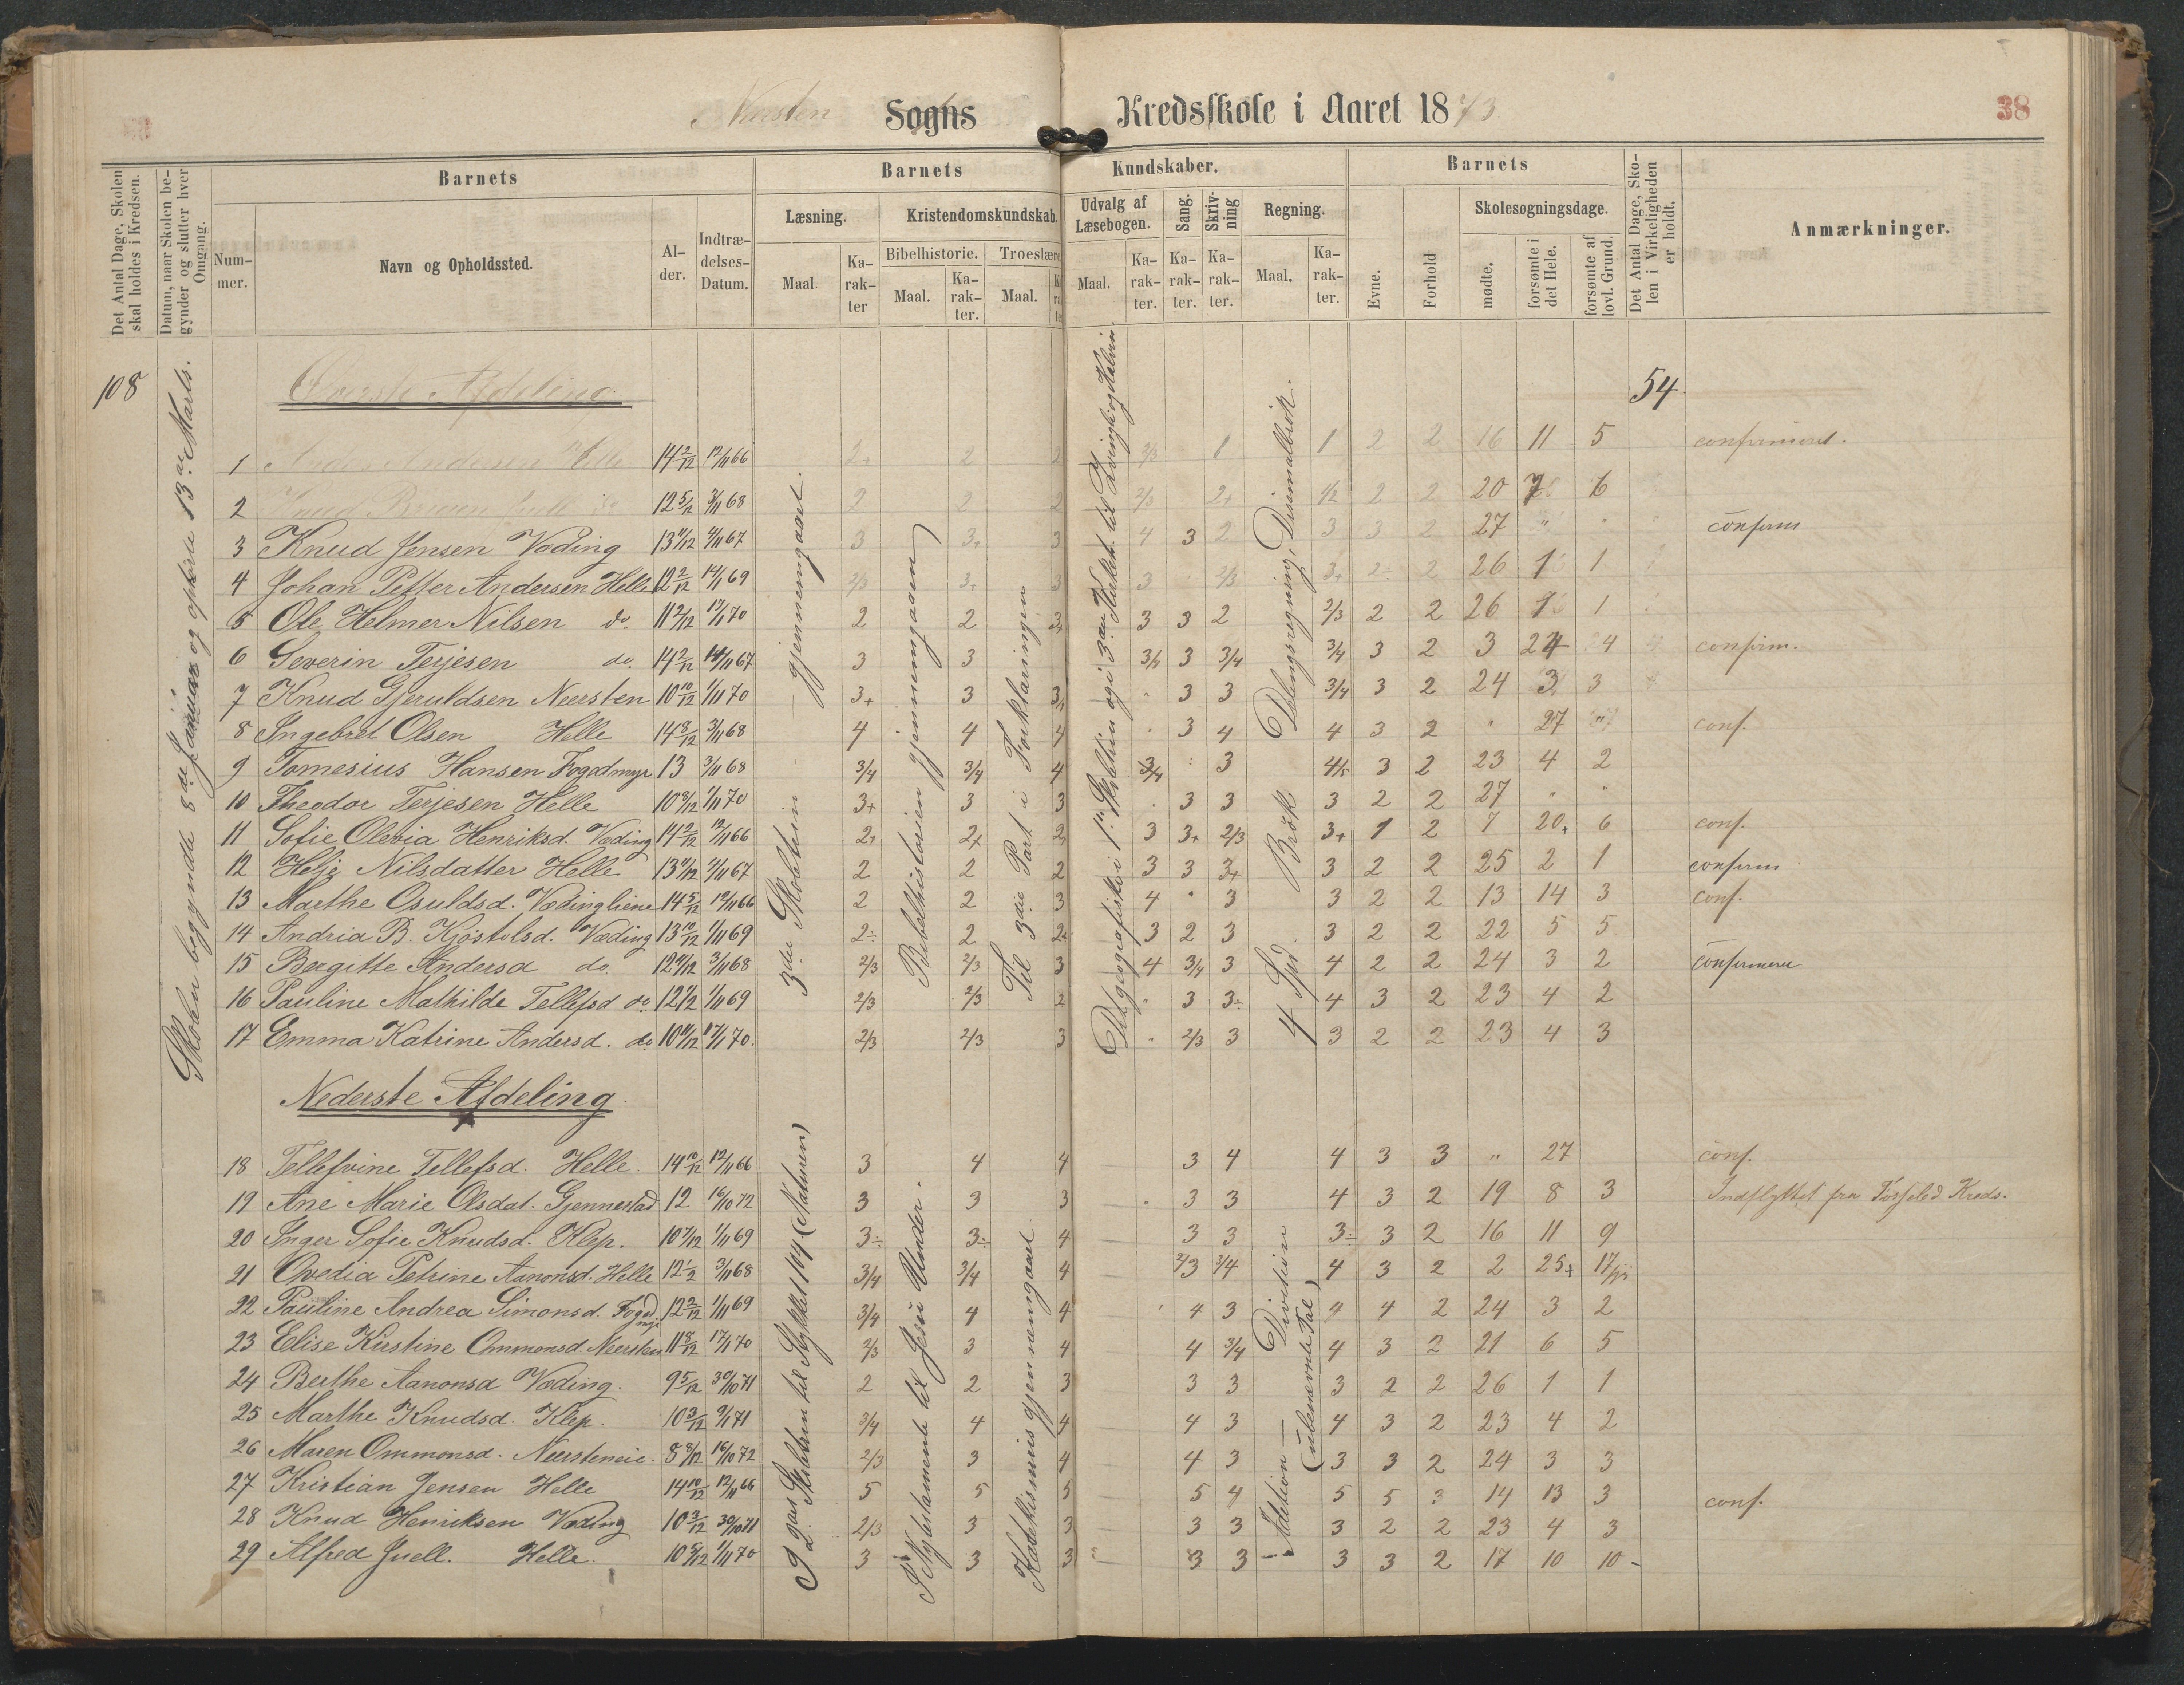 Neersten Sogns Kredsskole i Aaret 1873
38
Det Antal Dage, Skolen skal holdes i Kredsen.
Datum, naar Skolen begynder og slutter hver Omgang.
Barnets
Nummer.
Navn og Opholdssted.
Alder.
Indtrædelses-Datum.
Barnets Kundskaber.
Læsning.
Maal
Karakter
Kristendomskundskab.
Bibelhistorie.
Maal.
Karakter.
Troeslære
Maal.
Udvalg af Læsebogen.
Maal.
Karakter.
Sang.
Karakter.
Skrivning
Karakter.
Regning.
Maal.
Karakter.
Barnets
Evne.
Forhold
Skolesøgningsdage.
mødte.
forsømte i det Hele.
forsømte af lovl. Grund.
Det Antal Dage, Skolen i Virkeligheden er holdt.
Anmærkninger.
108
Skolen begyndte 8de Januar og ophørte 13de Marts.
Øverste Afdeling
54
3die Skoletrin gjennemgaaet.
Bibelhistorien gjennemgaaen
Til 3die Part i Forklaringen
Det geografiske i 1ste Skoletrin og i 3die Kirkeh. til Zvingli og Kalvin.
4 Spd. Brök Delingsregning, Desimalbrök.
1 Anders Andersen Helle 14 2/12 12/11 66 2+ 2 2 2/3 1 1 2 2 16 11 5 confirmeret.
2 Knud 12 5/12 3/11 68 2 2 2 2/3 2+ 1/2 2 2 20 7 6
3 Knud Jensen Væding 13 11/12 4/11 67 3 3+ 3 4 3 2 3 3 2 27 " " confirm
4 Johan Petter Andersen Helle 12 2/12 14/1 69 2/3 3+ 3 3 2/3 3+ 2 2 26 1 1
5 Ole Helmer Nilsen do. 11 2/12 17/1 70 2 2 3+ 3 3 2 2/3 2 2 26 1 1
6 Severin Terjesen do. 14 2/12 14/11 67 3 3 3/4 3 3/4 3/4 3 2 3 24 4 confirm.
7 Knud Gjeruldsen Neersten 10 10/12 1/11 70 3+ 3 3+ " 3 3 3/4 3 2 24 3 3
8 Ingebret Olsen Helle 14 8/12 3/11 68 4 4 4 " 3 4 4 3 2 " 27 " conf.
9 Tomesius Hansen Fogdmyr 13 3/11 68 3/4 3/4 4 3/4 " 3 4/5 3 2 23 4 2
10 Theodor Terjesen Helle 10 8/12 1/11 70 3+ 3 3 " 3 3 3 2 2 27 " "
11 Sofie Olevia Henriksd. Væding 14 2/12 12/11 66 2+ 2+ 2 3 3+ 2/3 3+ 1 2 7 20+ 6 conf.
12 Helje Nilsdatter Helle 13 11/12 4/11 67 2 2 2 3 3 3+ 3 2 2 25 2 1 confirm
13 Marthe Osuldsd. Vædingliene 14 5/12 12/11 66 2 2 3 4 " 3 3 2 2 13 14 3 conf.
14 Andria B. Kjöstolsd. Væding 13 10/12 1/11 69 2÷ 2 2+ 3 2 3 3 2 2 22 5 5
15 Bergitte Andersd do. 12 11/12 3/11 68 2/3 2/3 3 4 3/4 3 4 2 2 24 3 2 confirmeret
16 Pauline Mathilde Tellefsd do 12 1/2 1/11 69 2/3 2/3 2 " 3 3÷ 4 3 2 23 4 2
17 Emma Katrine Andersd. do 10 11/12 17/1 70. 2/3 2/3 3 " 2/3 3 3 2 2 23 4 3
Nederste Afdeling.
I 2den Skoletrin til Stykket 104 (Naturen)
I Nytestamente til Jesu Under.
Katekismus gjennemgaaet
Adition — Division (ubenævnte Tal)
18 Tellefvine Tellefsd. Helle. 14 10/12 12/11 66 3 4 4 3 4 4 3 3 " 27 conf.
19 Ane Marie Olsdat. Gjennestad 12 16/10 72 3 3 3 " 3 3 4 3 2 19 8 3 Indflyttet fra Kreds.
20 Inger Sofie Knudsd. Klep. 10 7/12 1/11 69 3÷ 3÷ 4 3 3 3÷ 3 2 16 11 9
21 Ovedia Petrine Aanonsd. Helle 12 1/2 3/11 68 3/4 3/4 4 2/3 3/4 4 3 2 2 25+ 17
22 Pauline Andrea Simonsd. Fogdmyr 12 2/12 1/11 69 3/4 4 4 4 3 4 4 2 24 3 2
23 Elise Kirstine Ommonsd. Neersten 11 8/12 17/1 70 2/3 3 4 4 3/4 4 3 2 21 6 5
24 Berthe Aanonsd Væding. 9 5/12 30/10 71 2 2 3 3 3 3 2 2 26 1 1
25 Marthe Knudsd. Klep. 10 3/12 9/1 71 3/4 4 4 4 3 4 3 2 23 4 2
26 Maren Ommonsd. Neersteneie. 8 8/12 16/10 72 2/3 3 4 4 3 3 3 2 24 3 3
27 Kristian Jensen Helle 14 10/12 12/11 66 5 5 5 5 4 5 5 3 14 13 3 conf.
28 Knud Henriksen Væding 10 3/12 30/10 71 2/3 3 3 3 3 3 2 2 23 4 3
29 Alfred Juell. Helle. 10 8/12 1/11 70 3 3 3 3 3 3 3 2 17 10 10